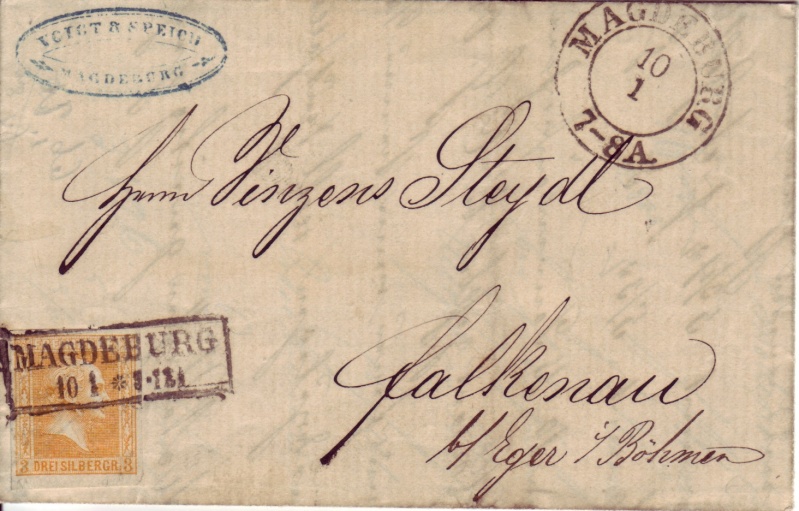 VOIGT & SPEICH
MAGDEBURG
MAGDEBURG
10
1
7-8A.
Herrn Vinzens Steydl
Falkenau
b/ Eger i/ Böhmen
MAGDEBURG
10 1
3 DREI SILBERGR. 3